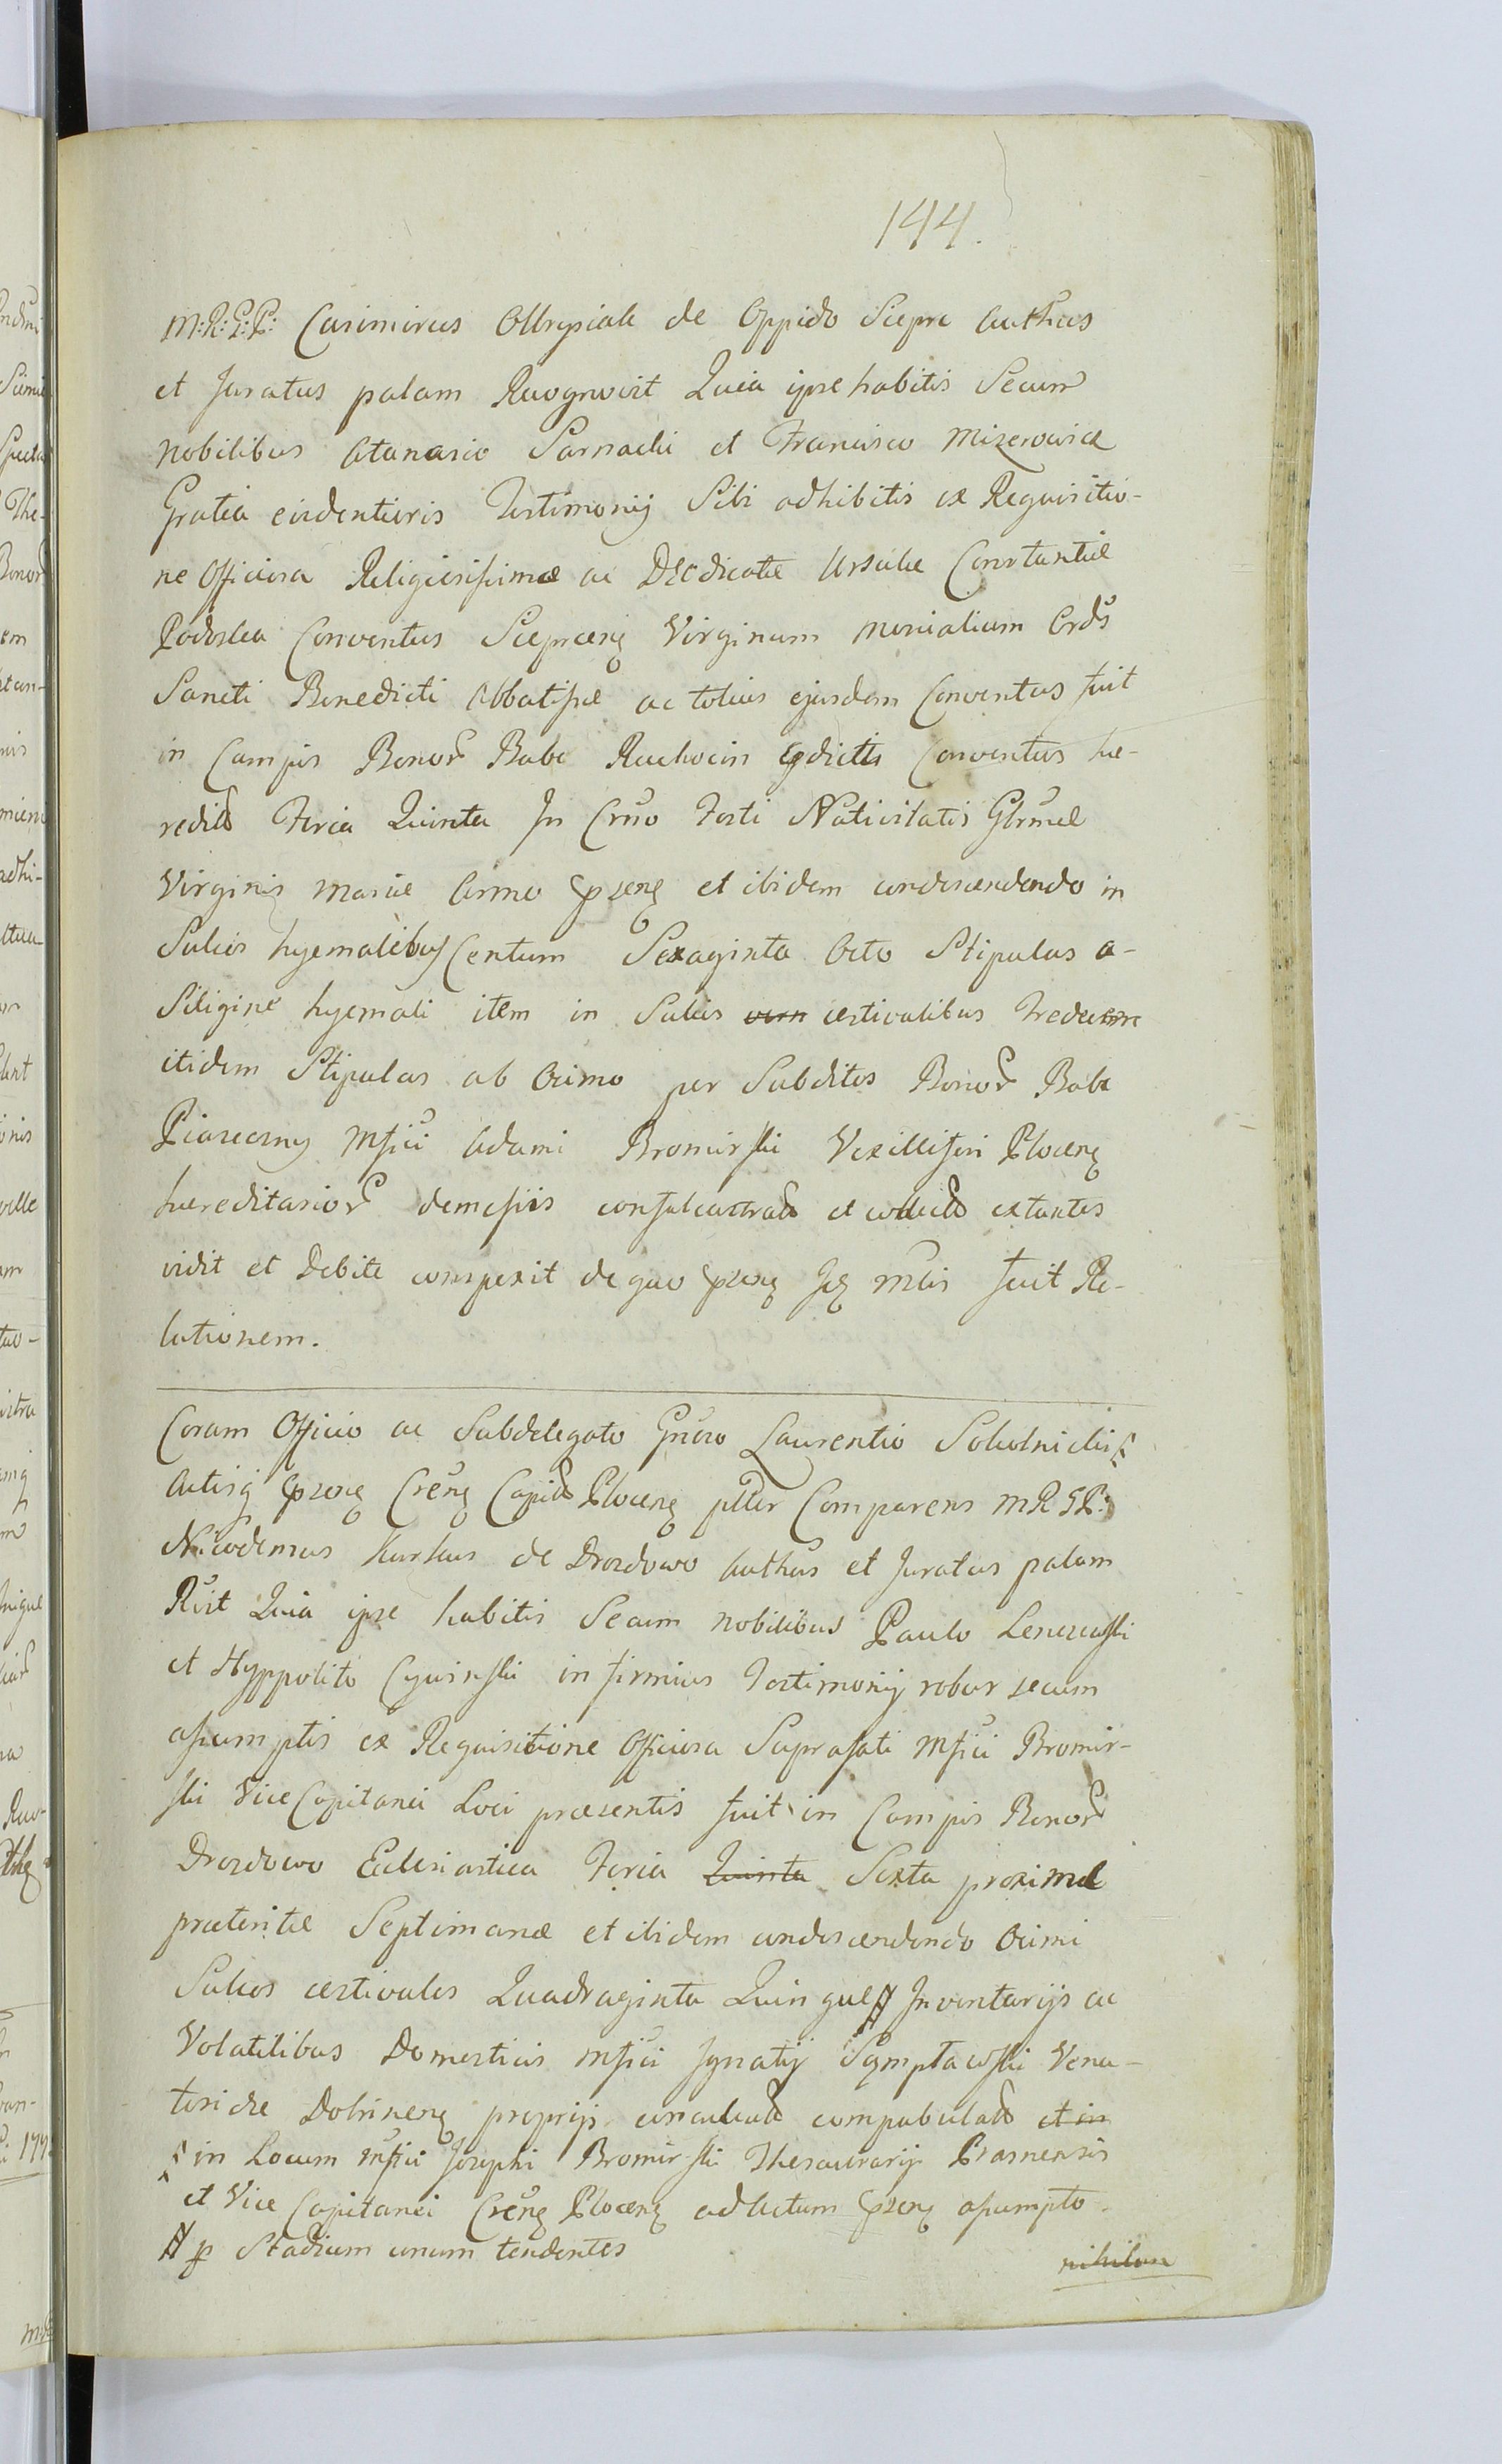 144.
M:R:G:P: Casimirus Olbrysiak de Oppido Sierpc Authus
et Juratus palam Recognovit Quia ipse habitis Secum
Nobilibus Atanasio Sarnacki et Francisco Mizerowicz
Gratia evidentioris Testimonij Sibi adhibitis ex Requisitio-
ne Officiosa Religiosissimæ ac DEO dicatæ Ursulæ Constantiæ
Podoska Conventus Sieprcens Virginum Monialium Ords
Sancti Benedicti Abbatissæ ac totius ejusdem Conventus fuit
in Campis Bonor Babc Rachocin pdicti Conventus hæ-
redit Feria Quinta In Crño Festi Nativitatis Glrmæ
Virginis Mariæ Anno pzens et ibidem condescendendo in
Sulcis hyemalibus Centum Sexaginta Octo Stipulas a-
Siligine hyemali item in Sulcis vern æstivalibus Tredecem
itidem Stipulas ab Ocimo per Subditos Bonor Babc
Piaseczny Mfici Adami Bromirski Vexilliferi Plocens
hæreditarior demessis conculcatrad et colluctd extantes
vidit et Debite conspexit de quo pzens Jq Mlis fecit Re-
lationem.
Coram Officio ac Subdelegato Gnöso Laurentio Sokolnicki
Actisq pzens Creñs Capit Plocens plter Comparens MRGP:
Nicodemus Kurkus de Drozdowo Authus et Juratus palam
Rvit Quia ipse habitis Secum Nobilibus Paulo Lenczewski
et Hyppolito Cywinski in firmius Testimonij robur secum
assumptis ex Requisitione Officiosa Suprafati Mfici Bromir-
ski Vice Capitanei Loci præsentis fuit in Campis Bonor
Drozdowo Ecclesiastica Feria Quinta Sexta proximæ
præteritæ Septimanæ et ibidem condescendendo Ocimi
Sulcos æstivales Quadraginta Quinque # Inventarijs ac
Volatilibus Domesticis Mfici Ignatij Symptawski Vena-
toridæ Dobrinens proprijs conculcatd compabulatd et in
in Locum Mfici Josephi Bromirski Thesaurarij Prasnensis
et Vice Capitanei Creñs Plocens ad Actum pzens assumpto.
# p Stadium unum tendentes
nihilom